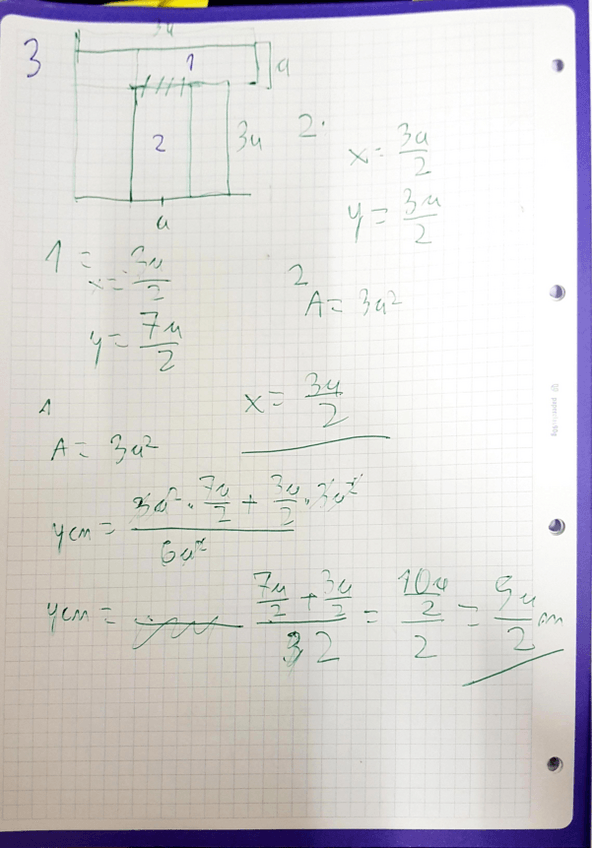 3
3a
1
a
2
3a
a
2.
x = 3a/2
y = 3a/2
1 =
x = 3a/2
y = 7a/2
2
A = 3a²
x = 3a/2
1
A = 3a²
ycm = (3a² · 7a/2 + 3a/2 · 3a²)/6a²
ycm = (7a/2 + 3a/2)/2 = (10a/2)/2 = 5a/2 cm